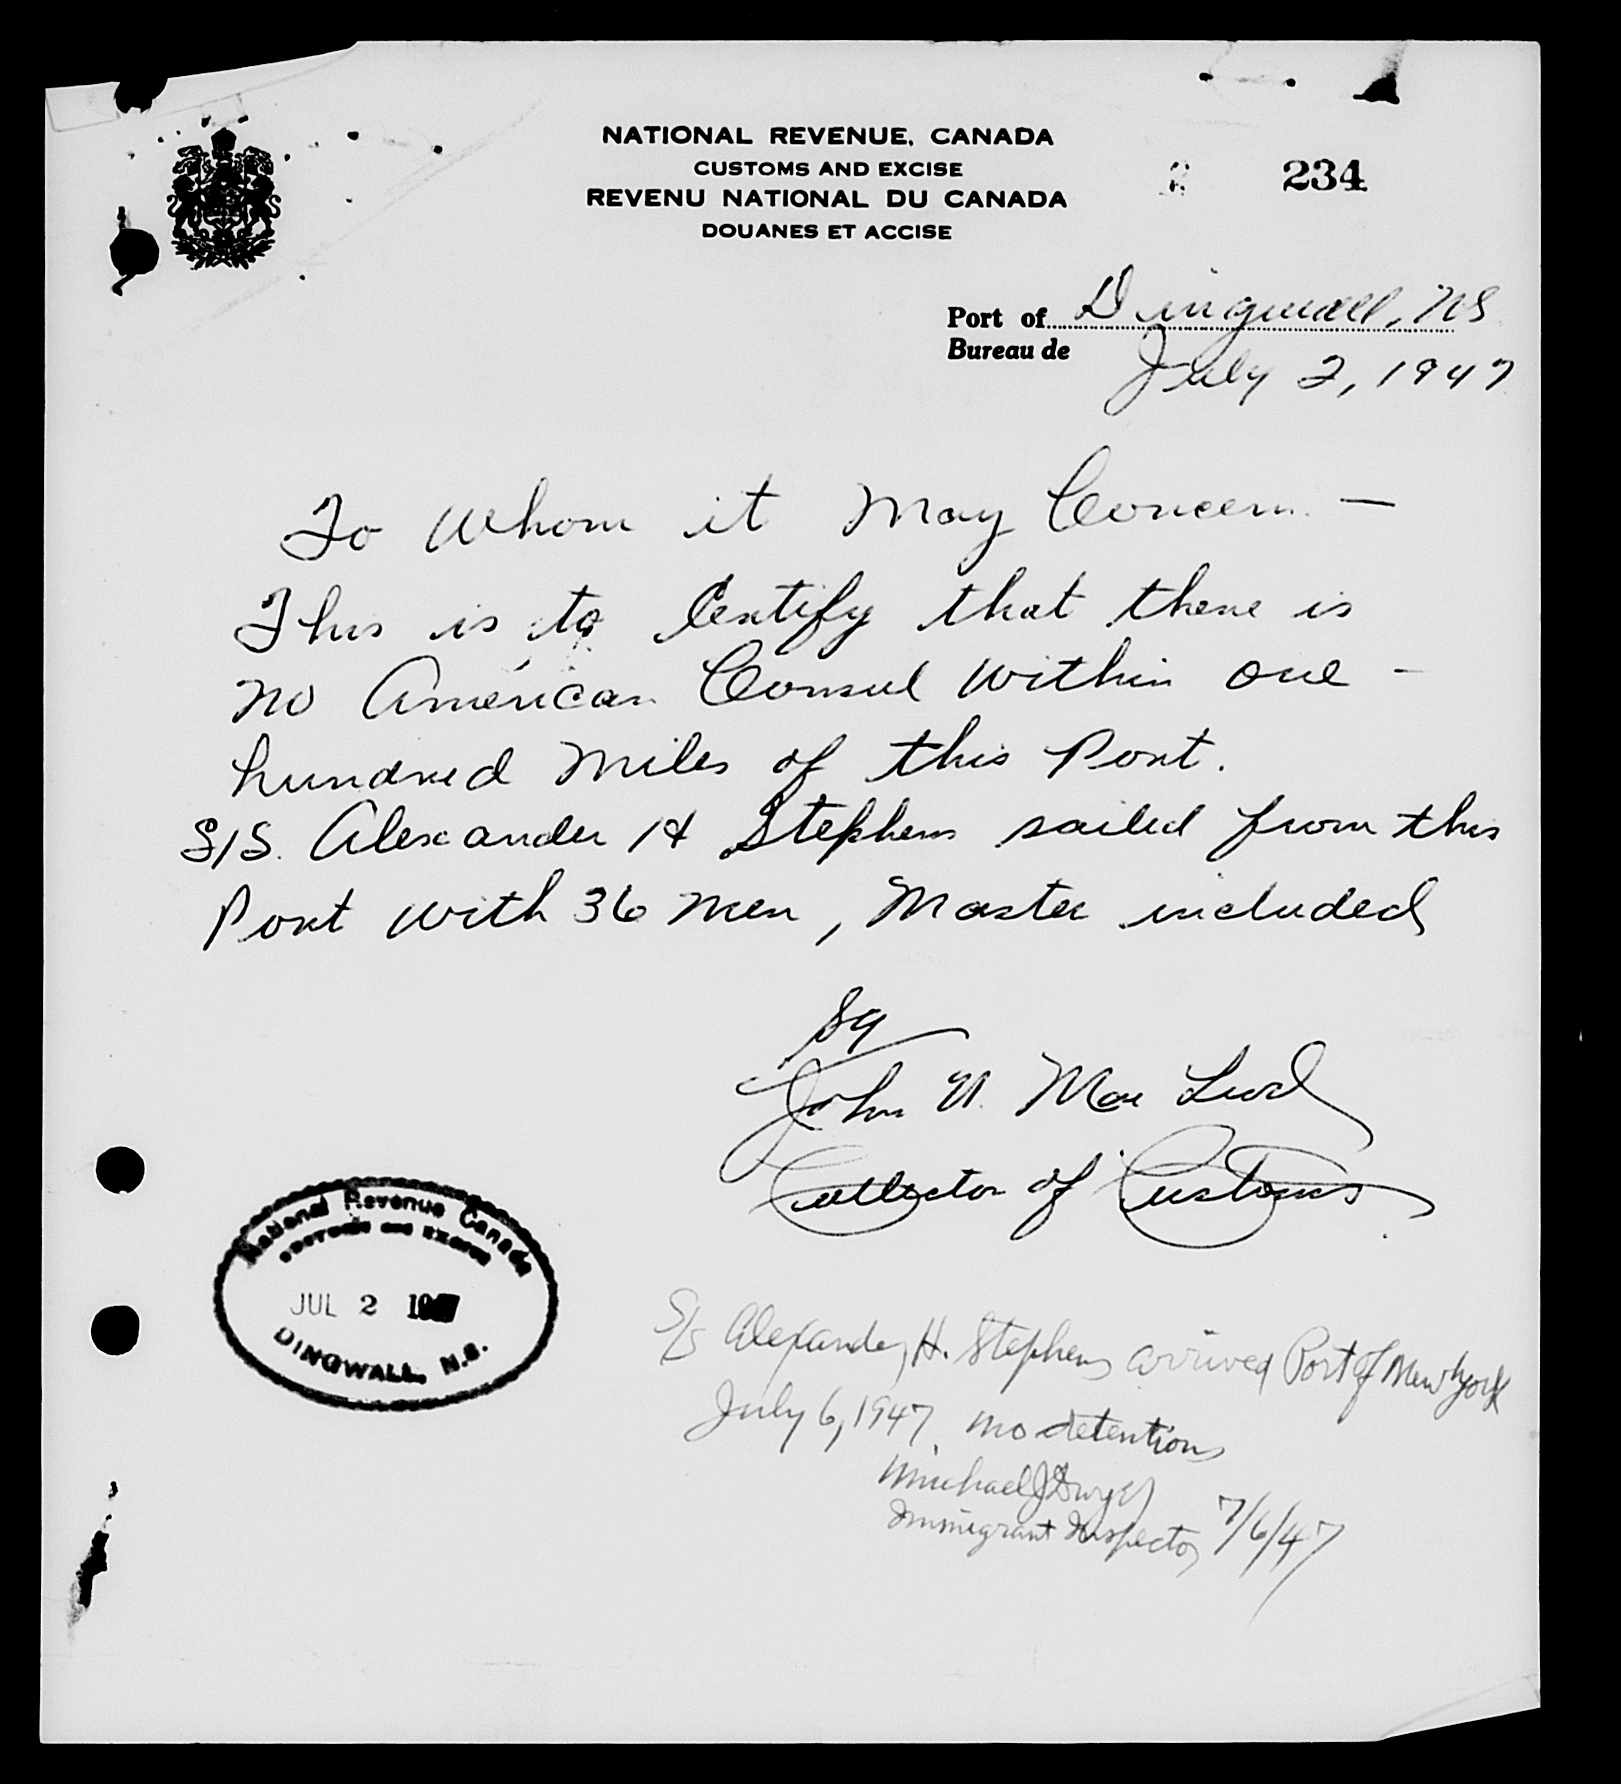 NATIONAL REVENUE, CANADA
CUSTOMS AND EXCISE
REVENU NATIONAL DU CANADA
DOUANES ET ACCISE
234
Port of Dingwall, NS
Bureau de
July 2, 1947
To Whom it May Concern. —
This is to Certify that there is
no American Consul Within one -
hundred Miles of this Port.
S/S. Alexander H Stephens sailed from this
Port With 36 Men, Master included
Sg
John N. Mac Leod
Collector of Customs
National Revenue Canada
CUSTOMS AND EXCISE
JUL 2 1947
DINGWALL, N.S.
S/S Alexander H. Stephens arrived Port of New York
July 6, 1947 no detentions
Michael J Dwyer
Immigrant Inspector 7/6/47